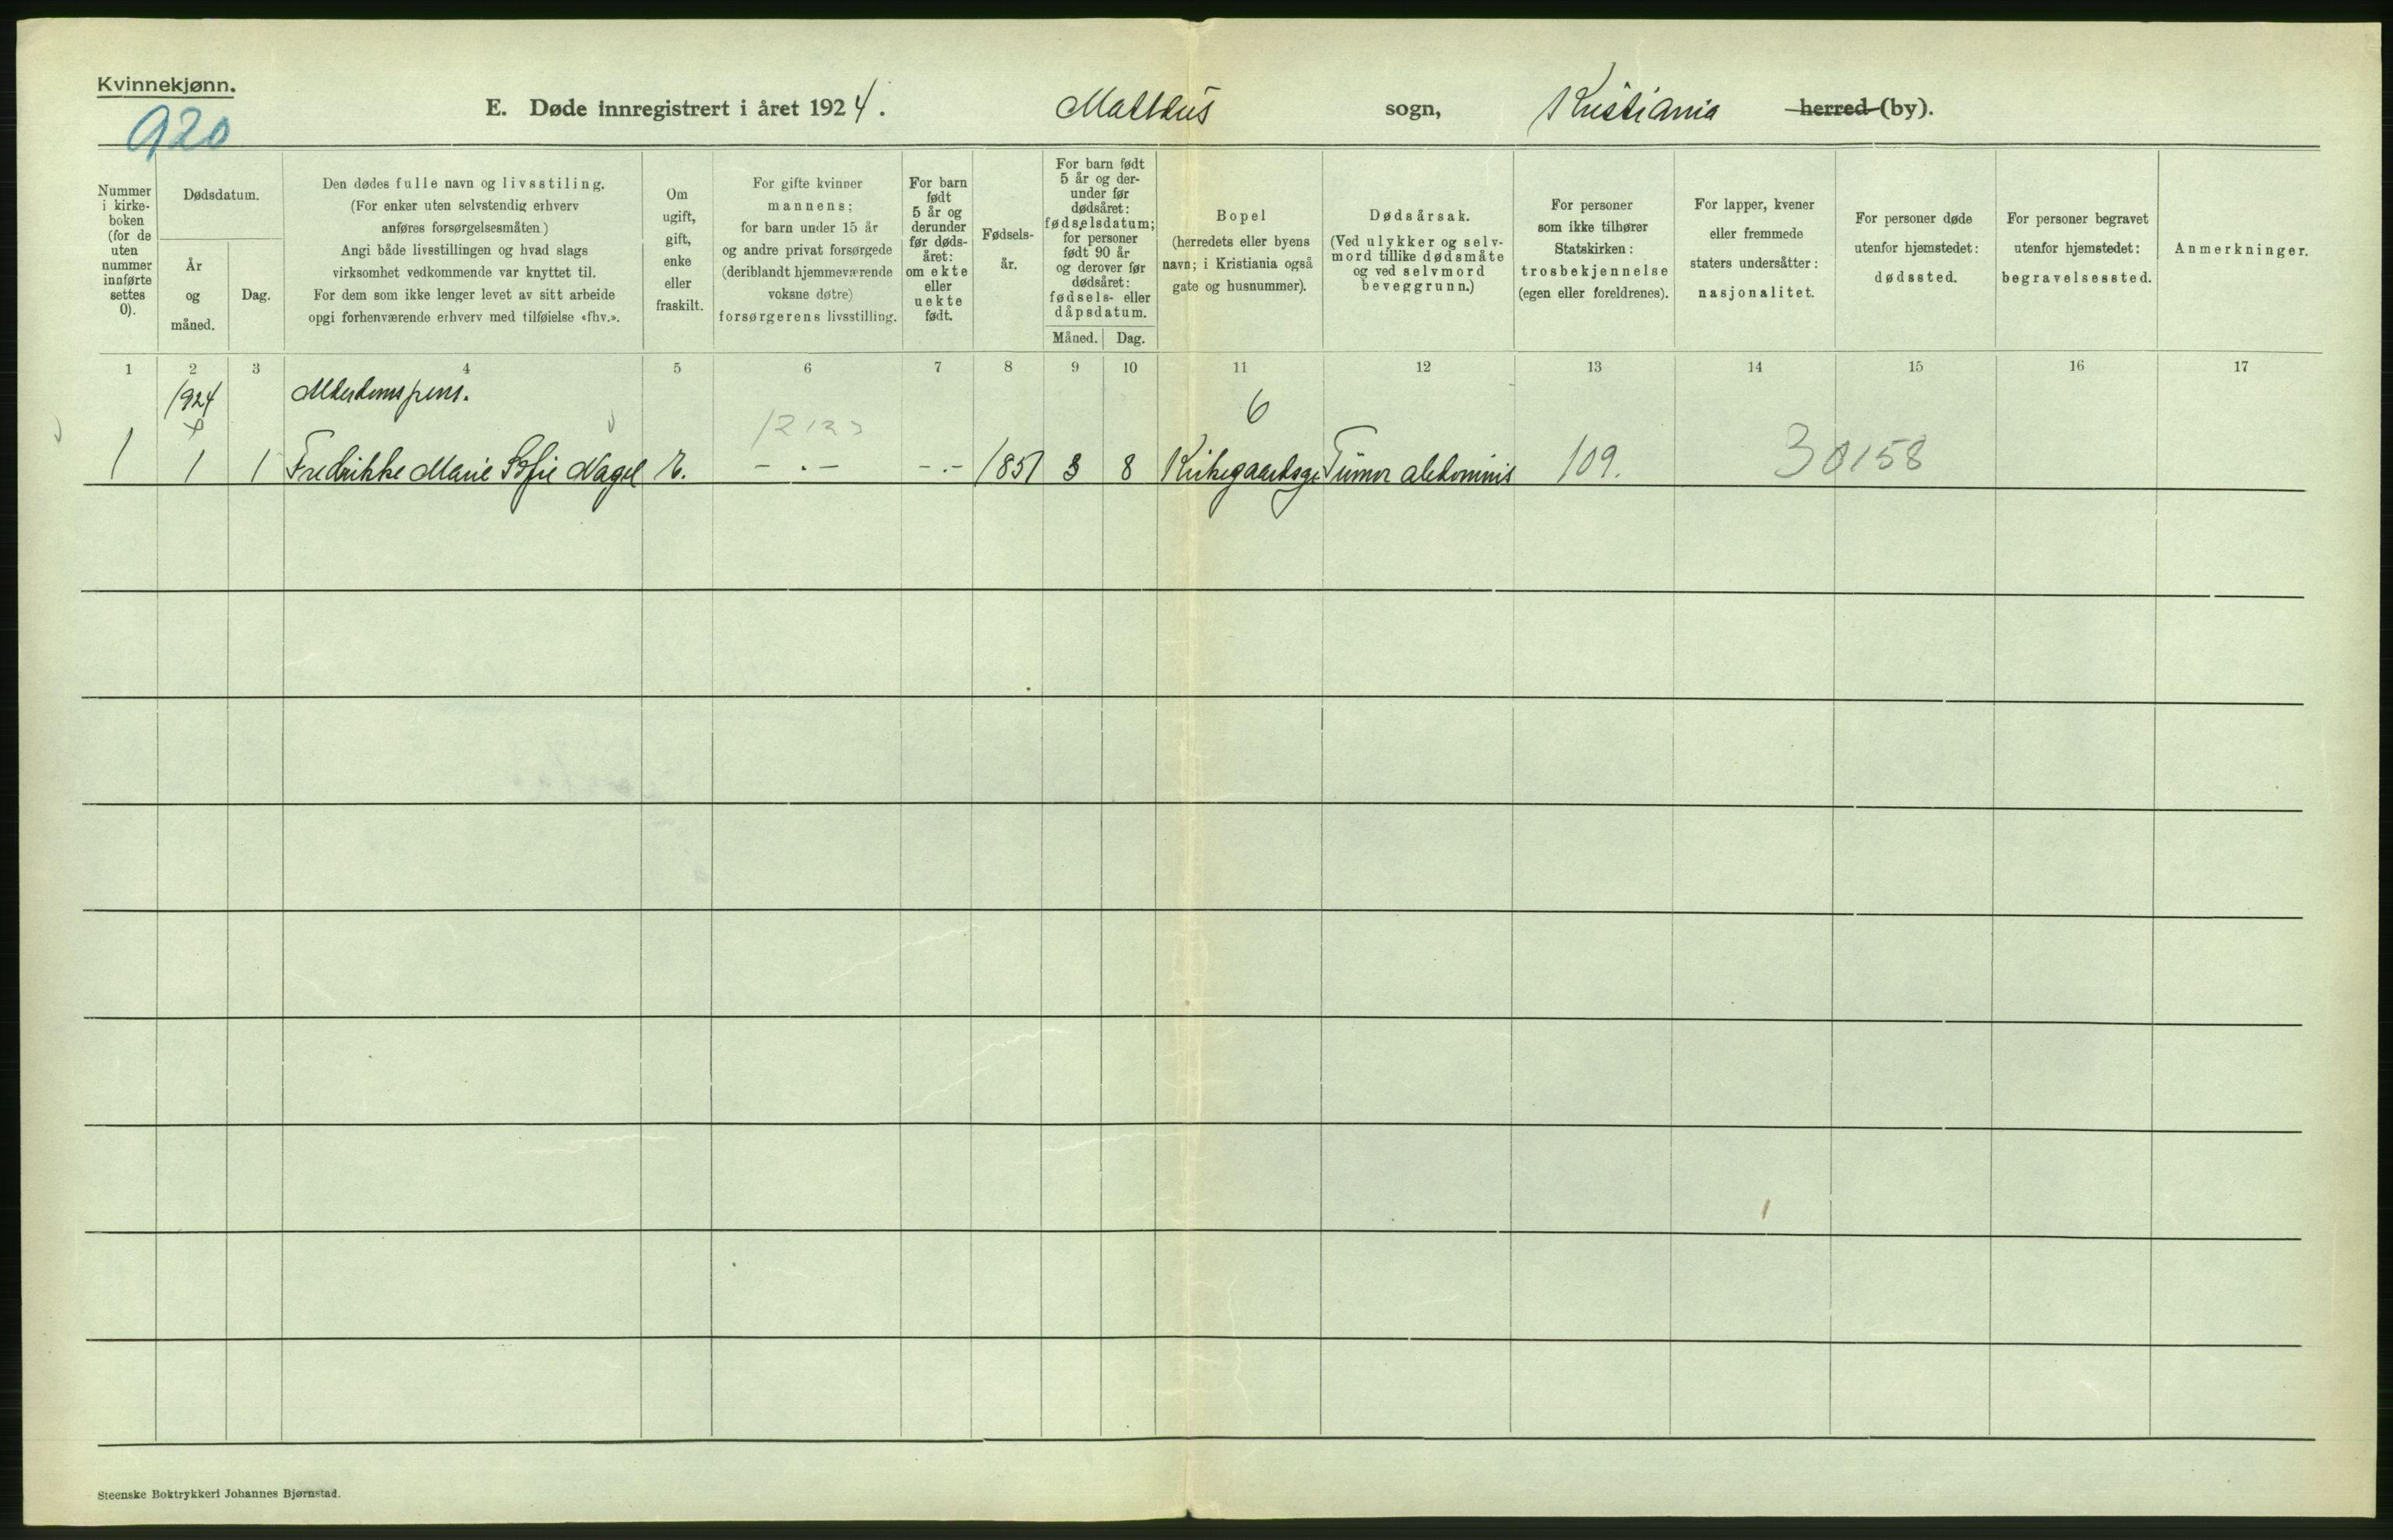 Kvinnekjønn.
920
E. Døde innregistrert i året 1924. Matteus sogn, Kristiania herred (by).
Nummer
i kirke-
boken
(for de
uten
nummer
innførte
settes
0).
Dødsdatum.
År
og
måned.
Dag.
Den dødes fulle navn og livsstiling.
(For enker uten selvstendig erhverv
anføres forsørgelsesmåten)
Angi både livsstillingen og hvad slags
virksomhet vedkommende var knyttet til.
For dem som ikke lenger levet av sitt arbeide
opgi forhenværende erhverv med tilføielse «fhv.».
Om
ugift,
gift,
enke
eller
fraskilt.
For gifte kvinner
mannens;
for barn under 15 år
og andre privat forsørgede
(deriblandt hjemmeværende
voksne døtre)
forsørgerens livsstilling.
For barn
født
5 år og
derunder
før døds-
året:
om ekte
eller
uekte
født.
Fødsels-
år.
For barn født
5 år og der-
under før
dødsåret:
fødselsdatum;
for personer
født 90 år
og derover før
dødsåret:
fødsels- eller
dåpsdatum.
Måned. Dag.
Bopel
(herredets eller byens
navn; i Kristiania også
gate og husnummer).
Dødsårsak.
(Ved ulykker og selv-
mord tillike dødsmåte
og ved selvmord
beveggrunn.)
For personer
som ikke tilhører
Statskirken:
trosbekjennelse
(egen eller foreldrenes).
For lapper, kvener
eller fremmede
staters undersåtter:
nasjonalitet.
For personer døde
utenfor hjemstedet:
dødssted.
For personer begravet
utenfor hjemstedet:
begravelsessted.
Anmerkninger.
1 2 3 4 5 6 7 8 9 10 11 12 13 14 15 16 17
1924 Alderdomspens. 6
1 1 1 Fredrikke Marie Sofie Nagel E. -.- -.- 1851 3 8 Kirkegaardsgt Tumor abdominis 109. 30158
Steenske Boktrykkeri Johannes Bjørnstad.